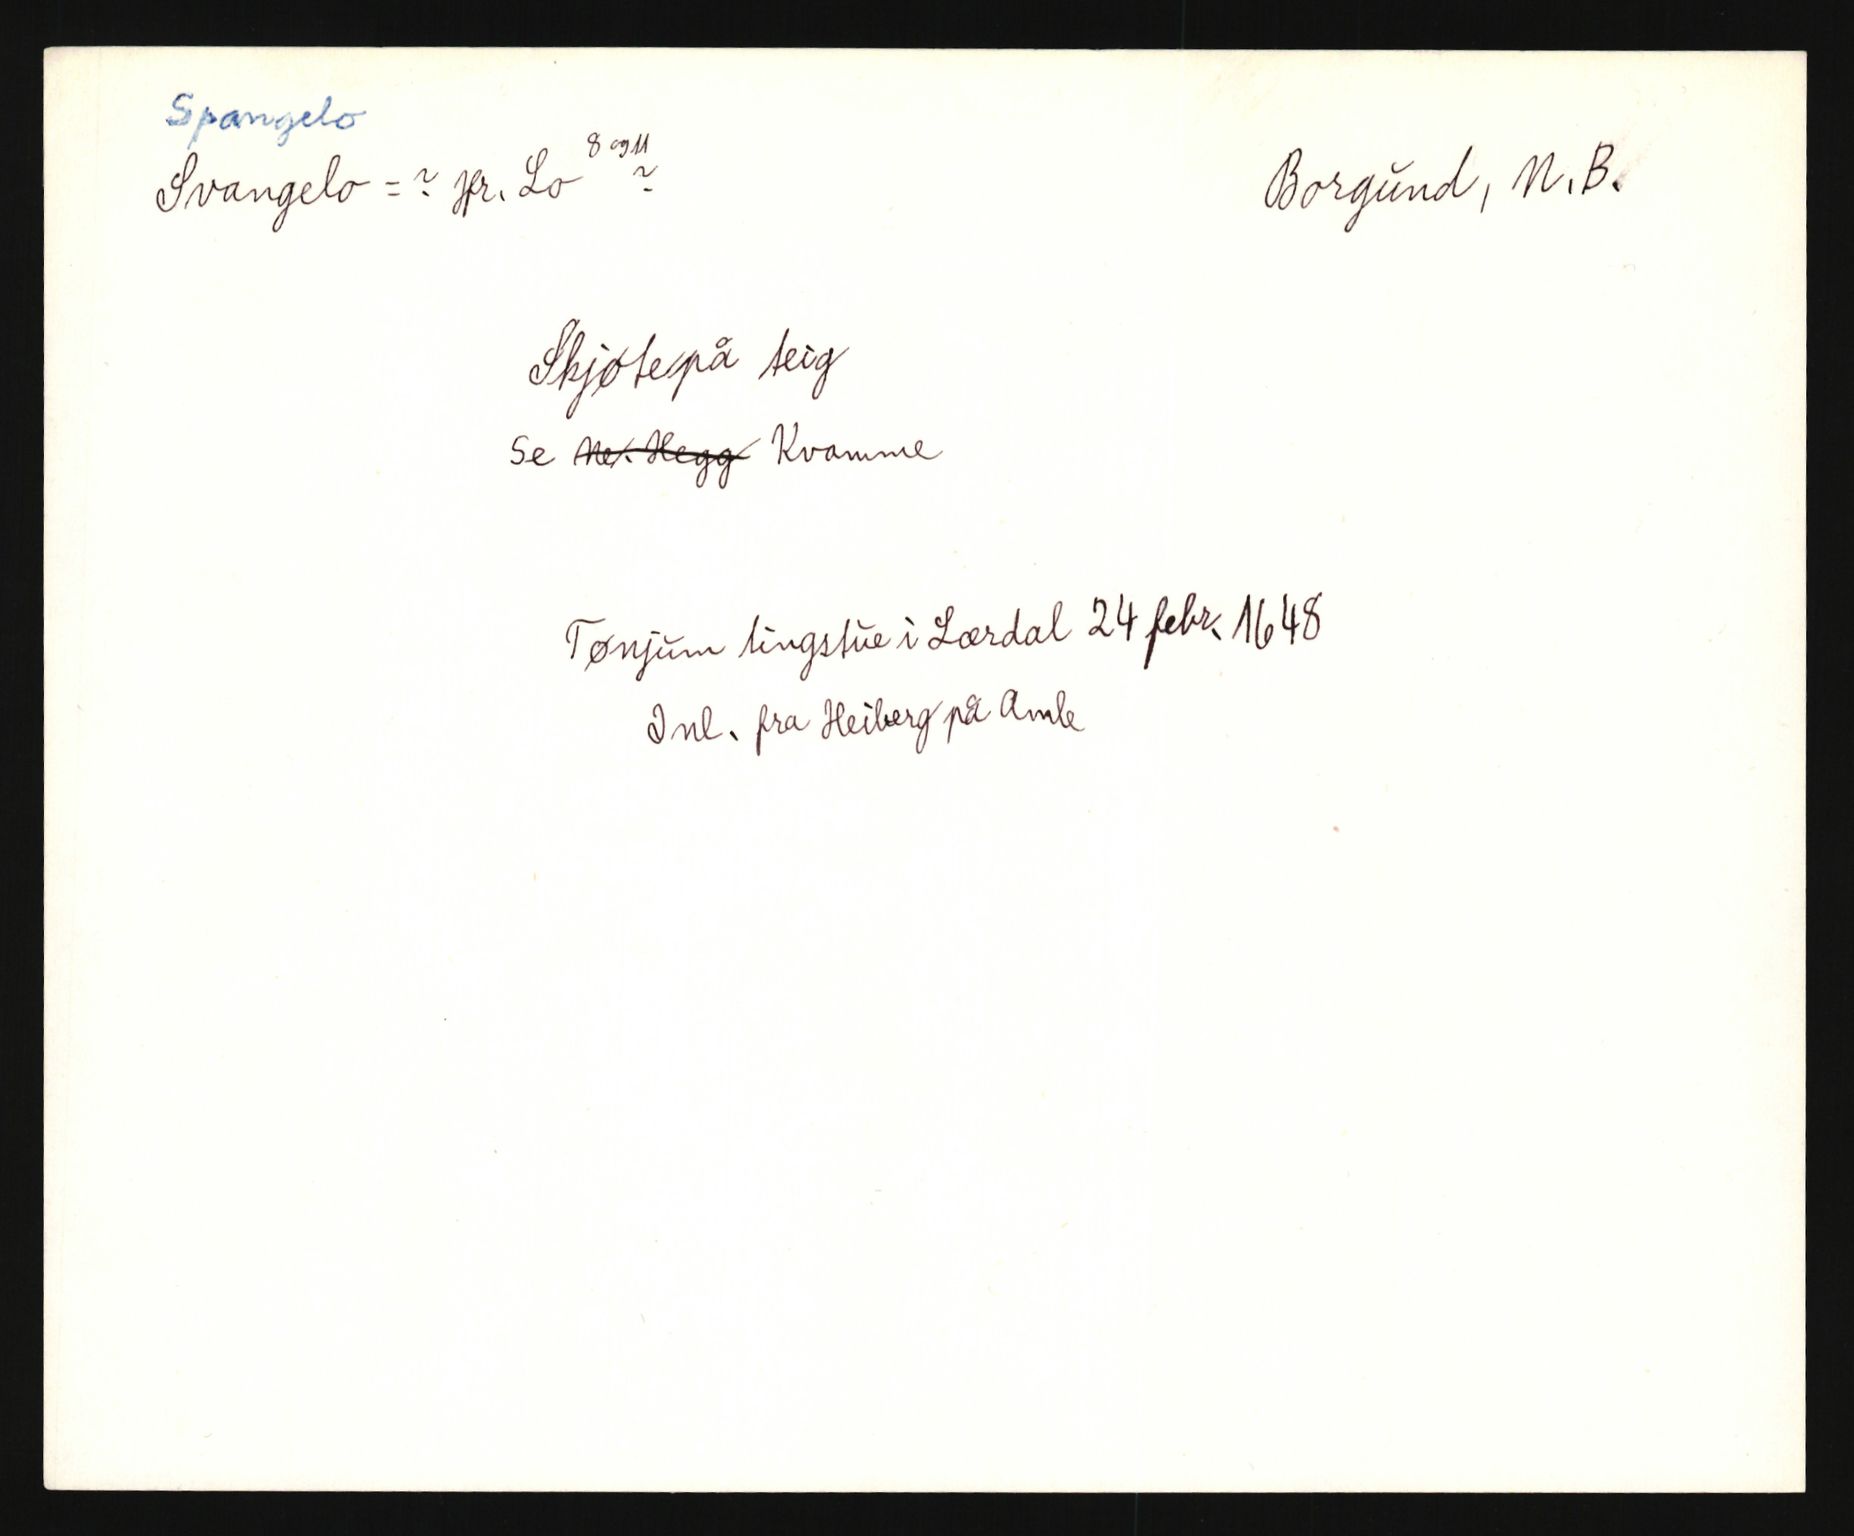 Spangelo
Svangelo = ? jfr. Lo 8 og 11 ?
Borgund, N.B.
Skjøte på teig
Se Ne. Hegg Kvamme
Tønjum tingstue i Lærdal 24 febr. 1648
Inl. fra Heiberg på Amle